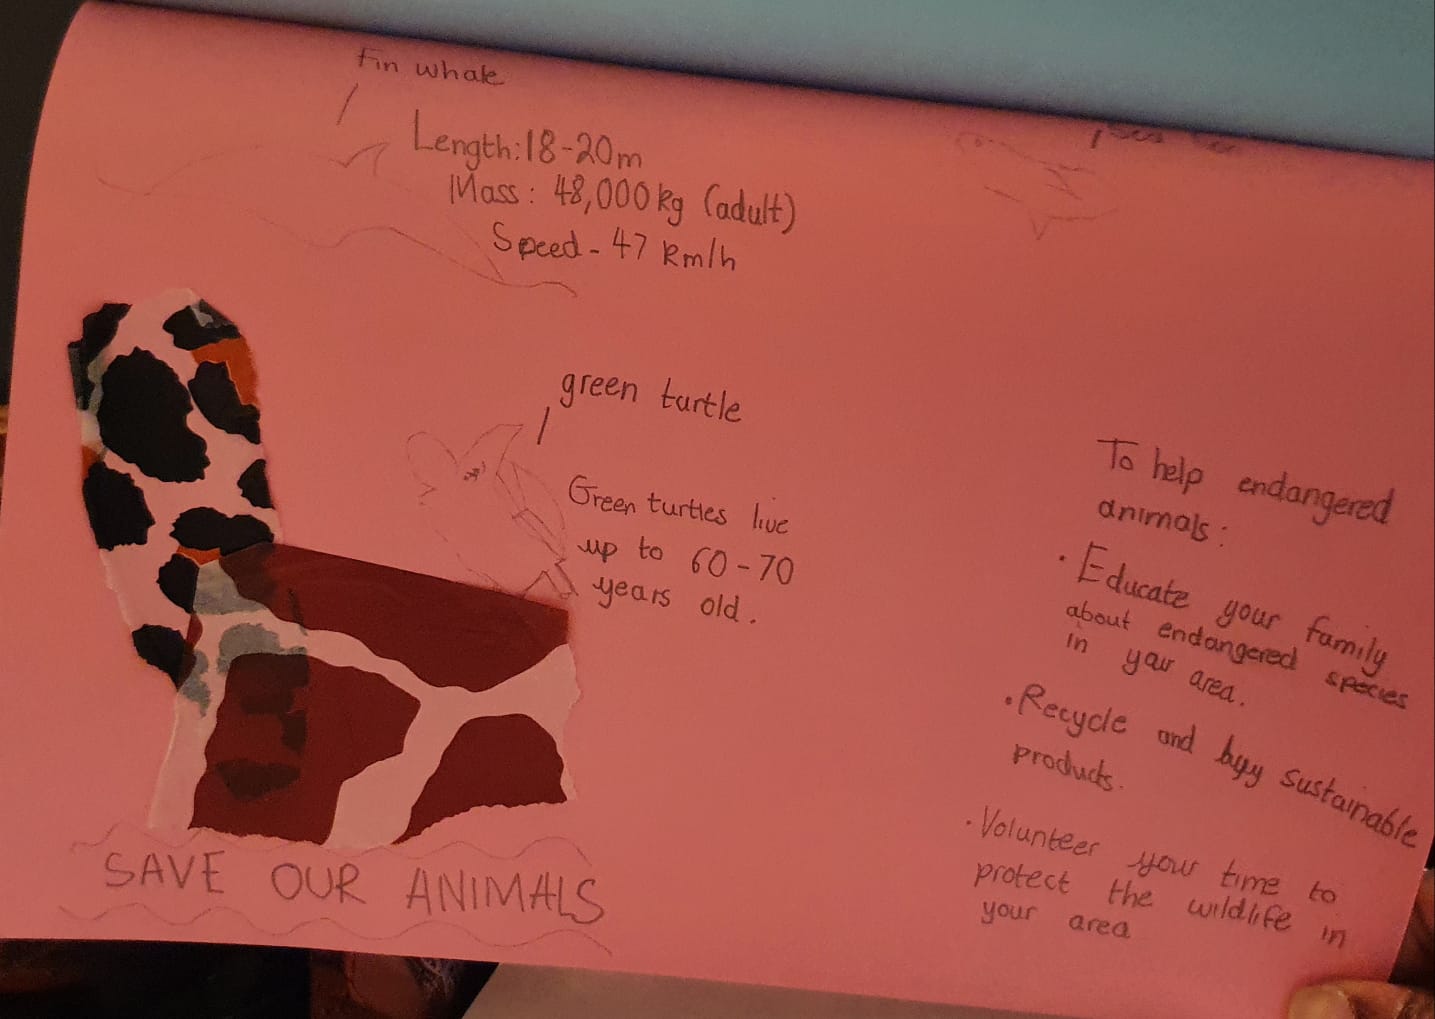 Fin whale
Length:18-20m
Mass: 48,000kg (adult)
Speed- 47 km/h
green turtle
Green turtles live
up to 60-70
years old.
SAVE OUR ANIMALS
To help endangered
animals:
• Educate your family
about endangered species
in your area.
• Recycle and buy sustainable
products.
• Volunteer your time to
protect the wildlife in
your area